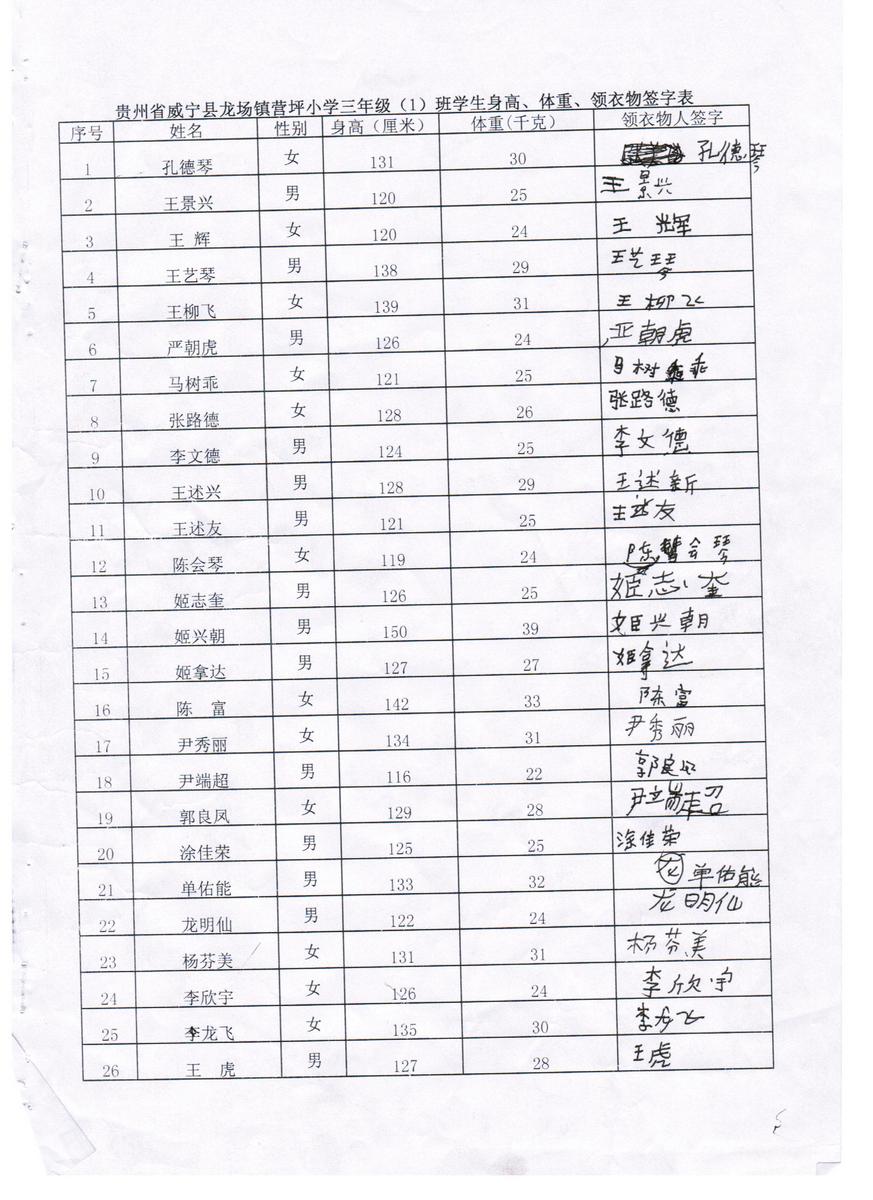 贵州省威宁县龙场镇营坪小学三年级（1）班学生身高、体重、领衣物签字表
序号 姓名 性别 身高（厘米） 体重(千克) 领衣物人签字
1 孔德琴 女 131 30 孔德琴
2 王景兴 男 120 25 王景兴
3 王 辉 女 120 24 王 辉
4 王艺琴 男 138 29 王艺琴
5 王柳飞 女 139 31 王柳飞
6 严朝虎 男 126 24 严朝虎
7 马树乖 女 121 25 马树乖
8 张路德 女 128 26 张路德
9 李文德 男 124 25 李文德
10 王述兴 男 128 29 王述新
11 王述友 男 121 25 王述友
12 陈会琴 女 119 24 陈会琴
13 姬志奎 男 126 25 姬志奎
14 姬兴朝 男 150 39 姬兴朝
15 姬拿达 男 127 27 姬拿达
16 陈 富 女 142 33 陈富
17 尹秀丽 女 134 31 尹秀丽
18 尹端超 男 116 22 郭良风
19 郭良凤 女 129 28 尹端超
20 涂佳荣 男 125 25 涂佳荣
21 单佑能 男 133 32 龙 单佑能
22 龙明仙 男 122 24 龙明仙
23 杨芬美 女 131 31 杨芬美
24 李欣宇 女 126 24 李欣宇
25 李龙飞 女 135 30 李龙飞
26 王 虎 男 127 28 王虎